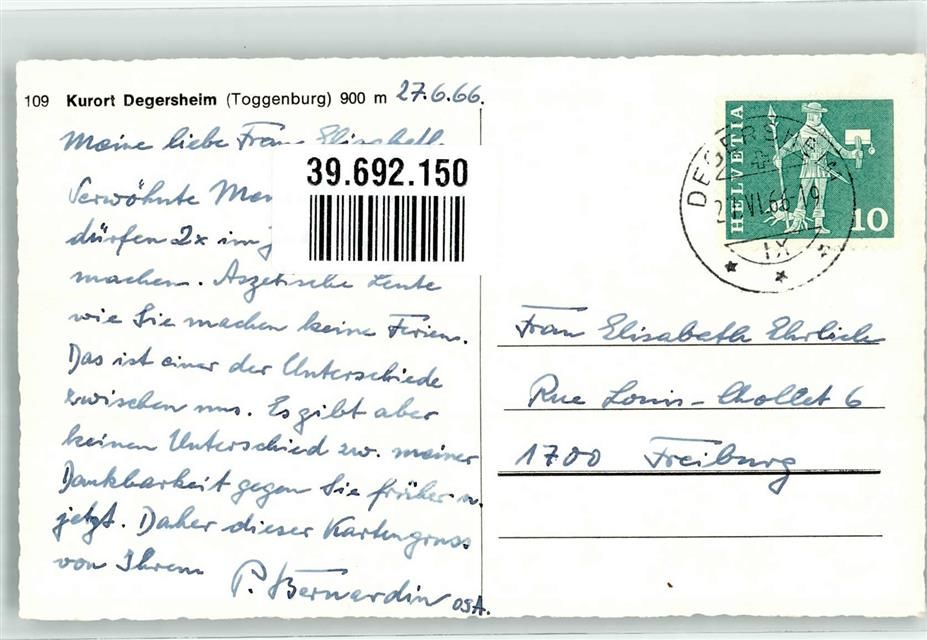 109 Kurort Degersheim (Toggenburg) 900 m 27.6.66.
Meine liebe Frau Elisabeth
39.692.150
Verwöhnte
dürfen 2x im
machen. Aszetische Leute
wie Sie machen keine Ferien.
Das ist einer der Unterschiede
zwischen uns. Es gibt aber
keinen Unterschied zw. meiner
Dankbarkeit gegen Sie früher u.
jetzt. Daher dieser Kartengruss
von Ihrem
P. Bernardin OSA.
HELVETIA
10
DEGERSHEIM
VI.66-19
IX
Frau Elisabeth Ehrlich
Rue Louis-Chollet 6
1700 Freiburg